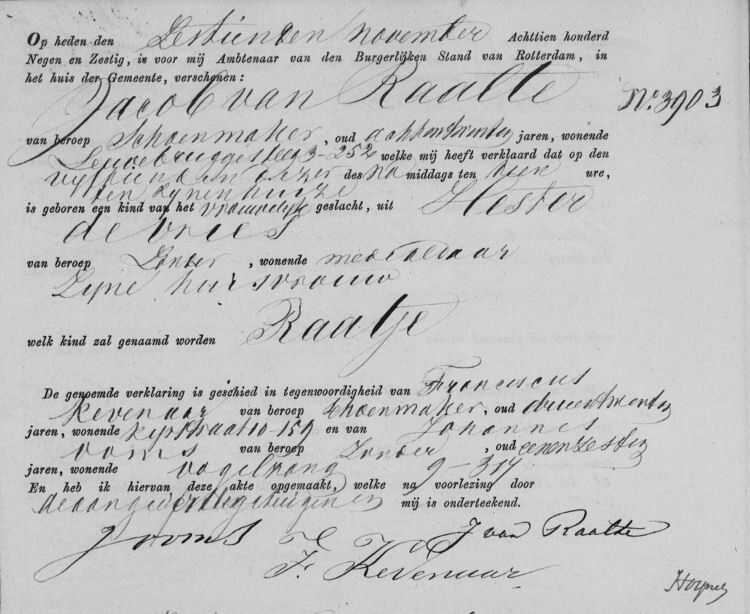 Op heden den Zestienden November Achttien honderd
Negen en Zestig, is voor mij Ambtenaar van den Burgerlijken Stand van Rotterdam, in
het huis der Gemeente, verschenen:
Jacob van Raalte
No. 3903
van beroep Schoenmaker, oud achtentwintig jaren, wonende
Leuvebruggesteeg 3-252 welke mij heeft verklaard dat op den
vyftienden dezer des na middags ten een ure,
ten zynen huize
is geboren een kind van het vrouwelyk geslacht, uit Hester
de Vries
van beroep Zonder, wonende mede aldaar
Zyne huisvrouw
welk kind zal genaamd worden Raatje
De genoemde verklaring is geschied in tegenwoordigheid van Franciscus
Kevenaar van beroep Schoenmaker, oud drieentwintig
jaren, wonende Kerkstraat 10-159 en van Johannes
Vooms van beroep Zonder, oud eenenzestig
jaren, wonende Vogelzang 9-317
En heb ik hiervan deze akte opgemaakt, welke na voorlezing door
de aangever de getuigen en mij is onderteekend.
J Vooms J van Raalte
F. Kevenaar